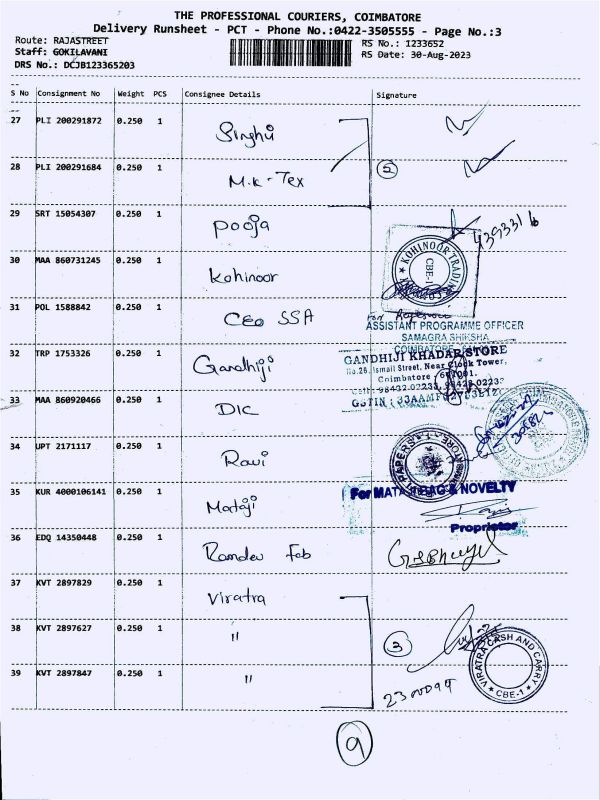 THE PROFESSIONAL COURIERS, COIMBATORE
Delivery Runsheet - PCT - Phone No.:0422-3505555 - Page No.:3
Route: RAJASTREET
RS No.: 1233652
Staff: GOKILAVANI
RS Date: 30-Aug-2023
DRS No.: DCJB123365203
S No Consignment No Weight PCS Consignee Details Signature
27 PLI 200291872 0.250 1 Singhvi
28 PLI 200291684 0.250 1 M.K-Tex 5
29 SRT 15054307 0.250 1 Pooja
30 MAA 860731245 0.250 1 Kohinoor
KOHINOOR TRADING
CBE-1
31 POL 1588842 0.250 1 CEO SSA
ASSISTANT PROGRAMME OFFICER
SAMAGRA SHIKSHA
COIMBATORE
32 TRP 1753326 0.250 1 Gandhiji
GANDHIJI KHADAR STORE
No.26, Ismail Street, Near Clock Tower,
Coimbatore - 641001.
33 MAA 860920466 0.250 1 DIC
34 UPT 2171117 0.250 1 Ravi
35 KUR 4000106141 0.250 1 Mataji
For MATAJI BAG & NOVELTY
Proprietor
36 EDQ 14350448 0.250 1 Ramdev Fab
37 KVT 2897829 0.250 1 Viratra
38 KVT 2897627 0.250 1 " 3
VIRATRA CASH AND CARRY
CBE-1
39 KVT 2897847 0.250 1 "
9